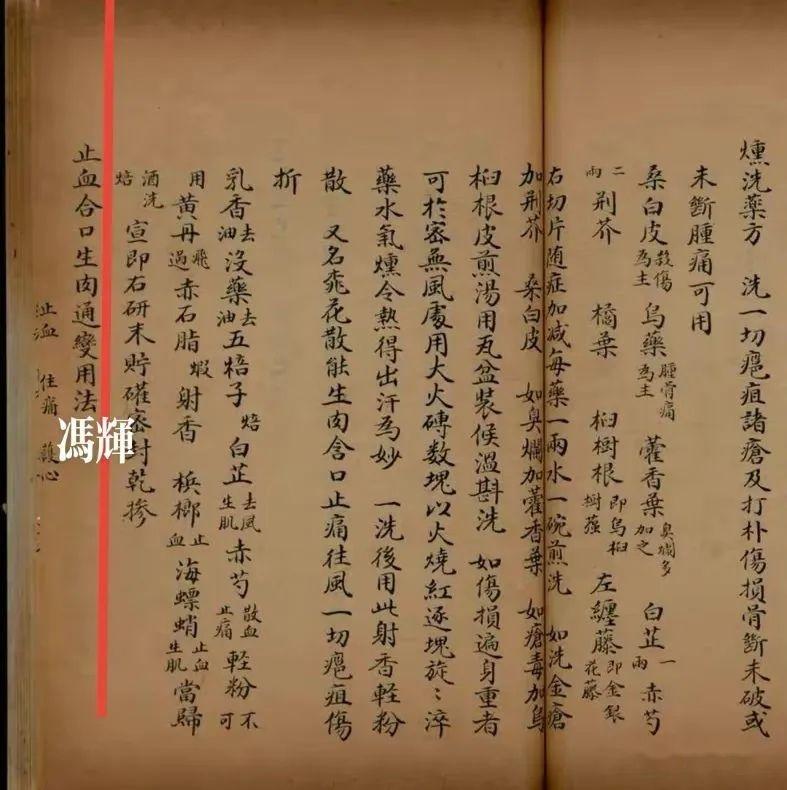 燻洗藥方　洗一切瘪疽諸瘡及打朴傷損骨斷未破或
未斷腫痛可用
桑白皮殺傷為主　烏藥腫骨痛為主　藿香葉臭爛多加之　白芷一兩　赤芍
二兩　荆芥　橘葉　桕樹根即烏桕樹蔃　左纏藤即金銀花藤
右切片随症加减每藥一兩水一碗煎洗　如洗金瘡
加荆芥　桑白皮　如臭爛加藿香葉　如瘡毒加烏
桕根皮煎湯用瓦盆裝候温斟洗　如傷損遍身重者
可於密無風處用大火磚数塊以火燒紅逐塊旋〻淬
藥水氣燻令熱得出汗為妙　一洗後用此射香輕粉
散　又名桃花散能生肉含口止痛往風一切瘪疽傷
折
乳香去油　沒藥去油　五棓子焙　白芷去風生肌　赤芍散血止痛　輕粉不可
用　黄丹飛過　赤石脂煅　射香　槟榔止血　海螵蛸止血生肌　當歸
酒洗焙　宣即右研末貯礶密封乾掺
止血合口生肉通變用法
止血　住痛　護心
馮輝